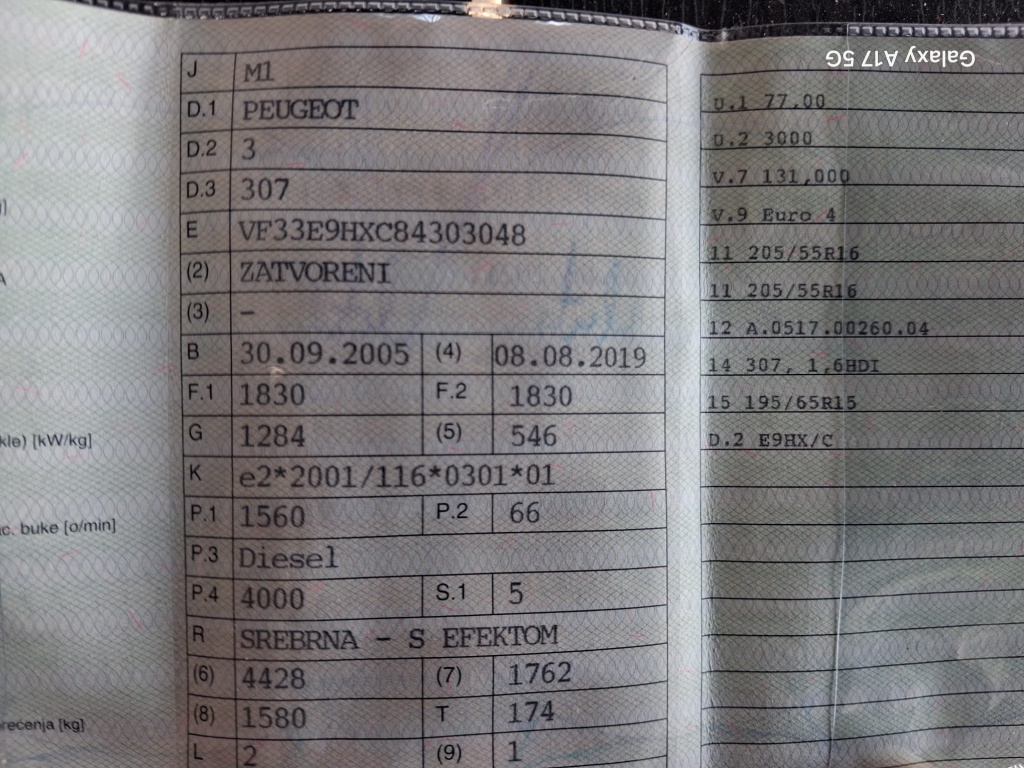 Galaxy A17 5G
J M1
D.1 PEUGEOT
D.2 3
D.3 307
E VF33E9HXC84303048
(2) ZATVORENI
(3) –
B 30.09.2005 (4) 08.08.2019
F.1 1830 F.2 1830
G 1284 (5) 546
K e2*2001/116*0301*01
P.1 1560 P.2 66
P.3 Diesel
P.4 4000 S.1 5
R SREBRNA - S EFEKTOM
(6) 4428 (7) 1762
(8) 1580 T 174
L 2 (9) 1
U.1 77,00
U.2 3000
V.7 131,000
V.9 Euro 4
11 205/55R16
11 205/55R16
12 A.0517.00260.04
14 307, 1,6HDI
15 195/65R15
D.2 E9HX/C
kle) [kW/kg]
c. buke [o/min]
rećenja [kg]